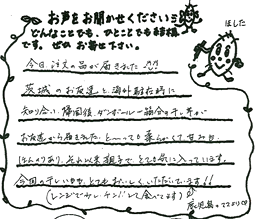 お声をお聞かせください
どんなことでも、ひとことでも結構
です。ぜひお寄せ下さい。
ほした
今日注文の品が届きました
茨城のお友達と、海外駐在時に
知り合い、帰国後、ダンボール一箱分の干し芋が
お友達から届きました。とーっても柔らかくて甘みが
ほんのりあり、それ以来親子でとても気に入っています。
今回の干しいもも、とてもおいしくいただいています!!
(レンジで少しチンして食べてます)
鹿児島の